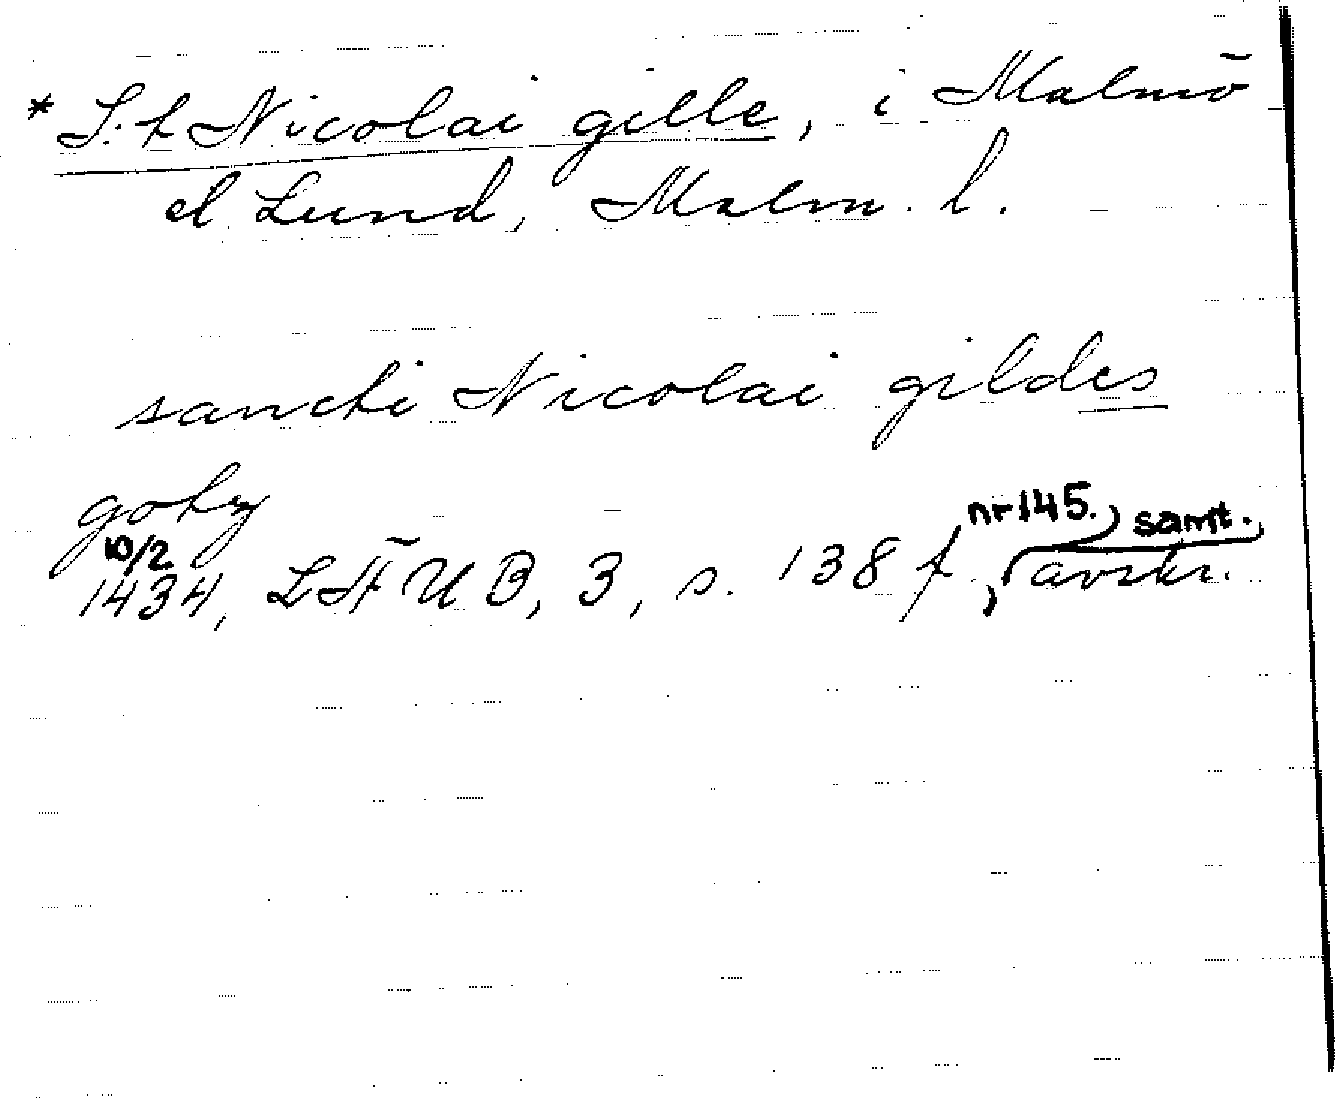 * S:t Nicolai gille, i Malmö
el Lund, Malm. l.
sancti Nicolai gildes
gotz
10/2 nr 145. samt.
1434, LÄUB, 3, s. 138 f, avskr.